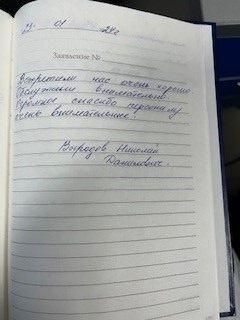 29 01 24г
Заявление №
Встретили нас очень хорошо
Обслужили внимательно
Огромное спасибо персоналу
очень внимательные!
Выродов Николай
Данилович.